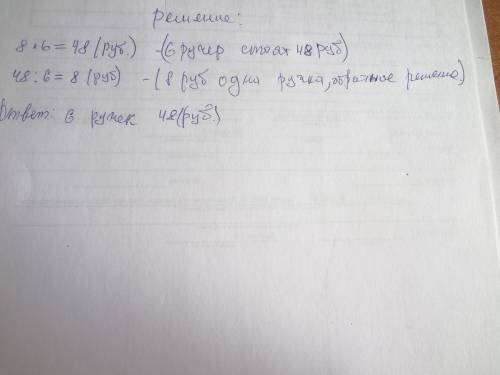 Решение:
8*6=48 (руб.) -(6 ручер стоят 48 руб)
48:6=8 (руб) -(8 руб одна ручка, обратные решено)
Ответ: 6 ручек 48(руб.)